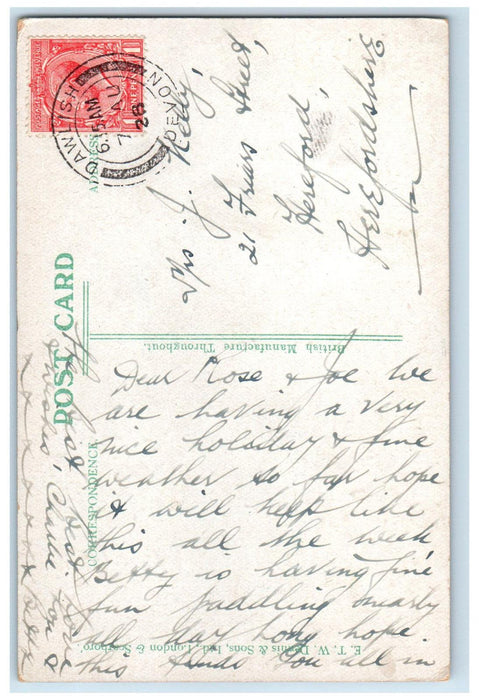 POST CARD
CORRESPONDENCE
ADDRESS
British Manufacture Throughout.
E. T. W. Dennis & Sons, Ltd., London & Scarboro'.
DAWLISH
6.15 AM
7 AU
26
DEVON
Mrs J. Kelly,
21 Friars Street,
Hereford,
Herefordshire
Dear Rose & Joe We
are having a very
nice holiday & fine
weather so far hope
it will keep like
this all the week
Betty is having fine
fun paddling nearly
all day long hope
this finds you all in
the best
love
Charlie